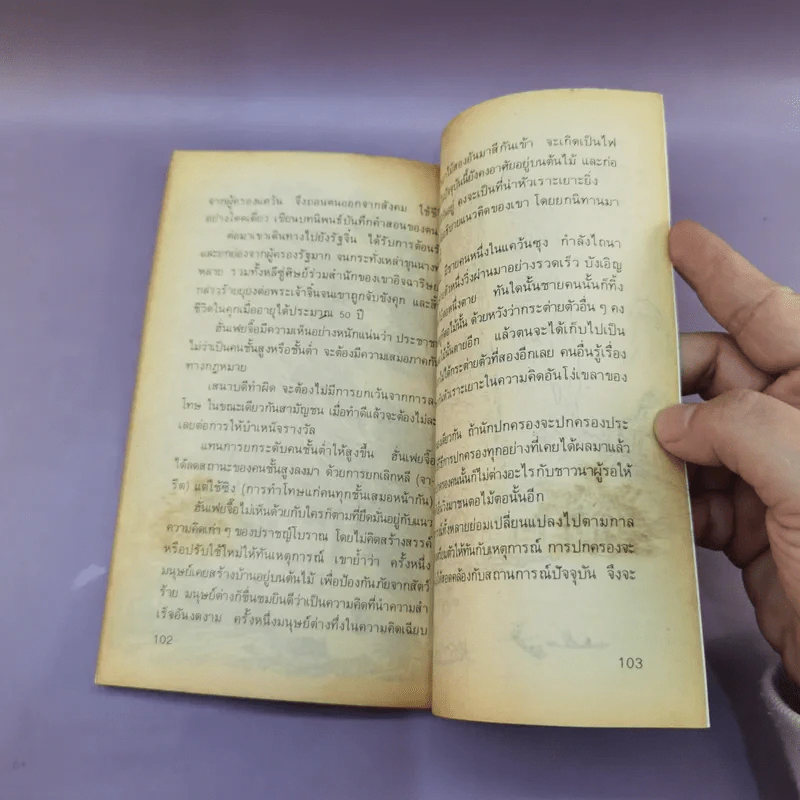 จากผู้ครองแคว้น จึงถอนตนออกจากสังคม ใช้ชี
อย่างโดดเดี่ยว เขียนบทนิพนธ์บันทึกคำสอนของตน
ต่อมาเขาเดินทางไปยังรัฐจิ๋น ได้รับการต้อนรั
และยกย่องจากผู้ครองรัฐมาก จนกระทั่งเหล่าขุนนาง
หลาย รวมทั้งหลีซู่ศิษย์ร่วมสำนักของเขาอิจฉาริษย
กล่าวร้ายยุยงต่อพระเจ้าจิ๋นจนเขาถูกจับขังคุก และ
ชีวิตในคุกเมื่ออายุได้ประมาณ 50 ปี
ฮั่นเฟยจื๊อมีความเห็นอย่างหนักแน่นว่า ประชาช
ไม่ว่าเป็นคนชั้นสูงหรือชั้นต่ำ จะต้องมีความเสมอภาคกัน
ทางกฎหมาย
เสนาบดีทำผิด จะต้องไม่มีการยกเว้นจากการล
โทษ ในขณะเดียวกันสามัญชน เมื่อทำดีแล้วจะต้องไม่ละ
เลยต่อการให้บำเหน็จรางวัล
แทนการยกระดับคนชั้นต่ำให้สูงขึ้น ฮั่นเฟยจื๊อ
ได้ลดสถานะของคนชั้นสูงลงมา ด้วยการยกเลิกหลี (จา
รีต) แต่ใช้ซิง (การทำโทษแก่คนทุกชั้นเสมอหน้ากัน)
ฮั่นเฟยจื๊อไม่เห็นด้วยกับใครก็ตามที่ยึดมั่นอยู่กับแนว
ความคิดเก่าๆ ของปราชญ์โบราณ โดยไม่คิดสร้างสรรค์
หรือปรับใช้ใหม่ให้ทันเหตุการณ์ เขาย้ำว่า ครั้งหนึ่ง
มนุษย์เคยสร้างบ้านอยู่บนต้นไม้ เพื่อป้องกันภัยจากสัตว์
ร้าย มนุษย์ต่างก็ชื่นชมยินดีว่าเป็นความคิดที่นำความสำ
เร็จอันงดงาม ครั้งหนึ่งมนุษย์ต่างทึ่งในความคิดเฉียบ
102
ไม้สองอันมาสีกันเข้า จะเกิดเป็นไฟ
ปัจจุบันนี้ยังคงอาศัยอยู่บนต้นไม้ และก่อ
อยู่ คงจะเป็นที่น่าหัวเราะเยาะยิ่ง
ธิบายแนวคิดของเขา โดยยกนิทานมา
มีชายคนหนึ่งในแคว้นซุง กำลังไถนา
ตัวหนึ่งวิ่งผ่านมาอย่างรวดเร็ว บังเอิญ
หนึ่งตาย ทันใดนั้นชายคนนั้นก็ทิ้ง
ไม้นั้น ด้วยหวังว่ากระต่ายตัวอื่นๆ คง
ไม้นั้นตายอีก แล้วตนจะได้เก็บไปเป็น
ได้กระต่ายตัวที่สองอีกเลย คนอื่นรู้เรื่อง
หัวเราะเยาะในความคิดอันโง่เขลาของ
เดียวกัน ถ้านักปกครองจะปกครองประ
วิธีการปกครองทุกอย่างที่เคยได้ผลมาแล้ว
ปกครองคนนั้นก็ไม่ต่างอะไรกับชาวนาผู้รอให้
วิ่งมาชนตอไม้ตอนั้นอีก
ทั้งหลายย่อมเปลี่ยนแปลงไปตามกาล
ตัวให้ทันกับเหตุการณ์ การปกครองจะ
ให้สอดคล้องกับสถานการณ์ปัจจุบัน จึงจะ
103